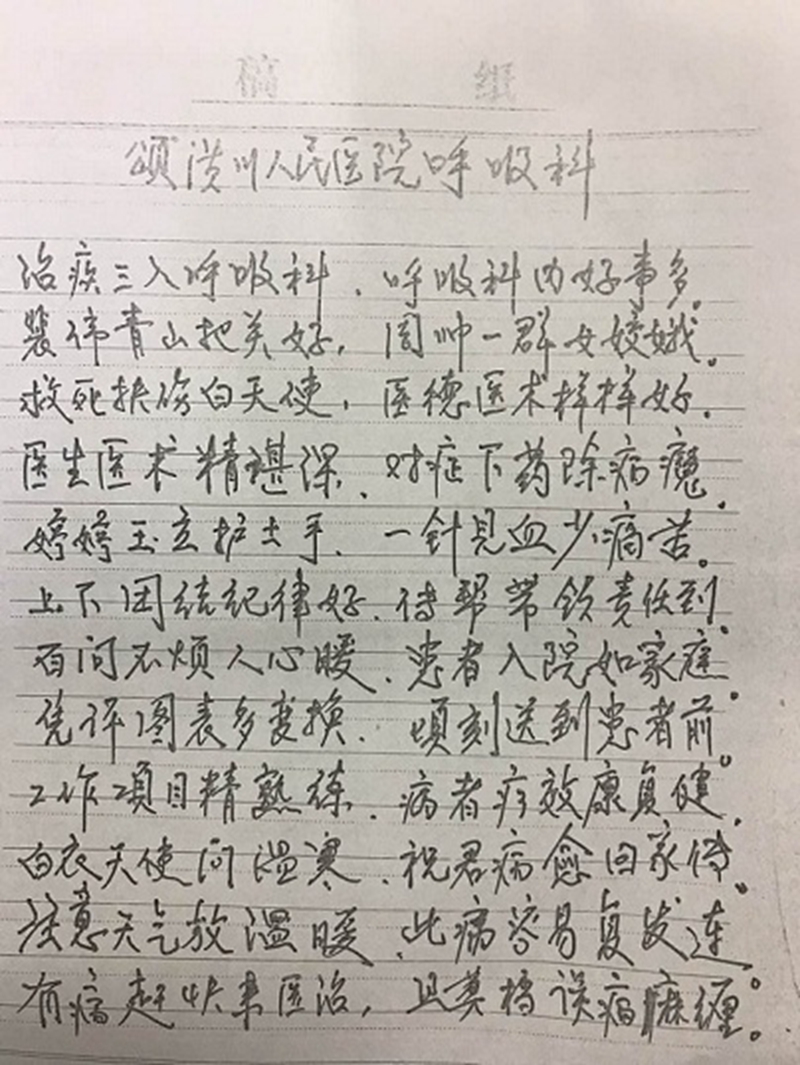 稿 纸
颂潢川人民医院呼吸科
治疾三入呼吸科、呼吸科内好事多。
裴伟青山把关好，周帅一群女姣娥。
救死扶伤白天使，医德医术样样好。
医生医术精堪深、对症下药除病魔。
婷婷玉立护士手、一针见血少痛苦。
上下团结纪律好、传帮带领责任到。
百问不烦人心暖、患者入院如家庭。
凭评图表多变换、顷刻送到患者前。
工作项目精熟练、病者疗效康复健。
白衣天使问温寒、祝君病愈回家传。
注意天气放温暖、此病容易复发连
有病赶快来医治，且莫担误病麻缠。